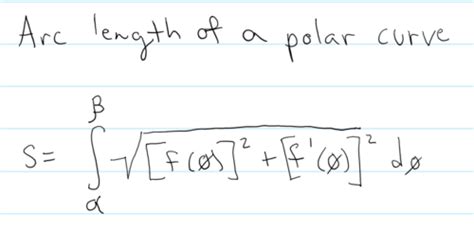 Arc length of a polar curve
S = ∫_α^β √([f(ø)]² + [f'(ø)]²) dø